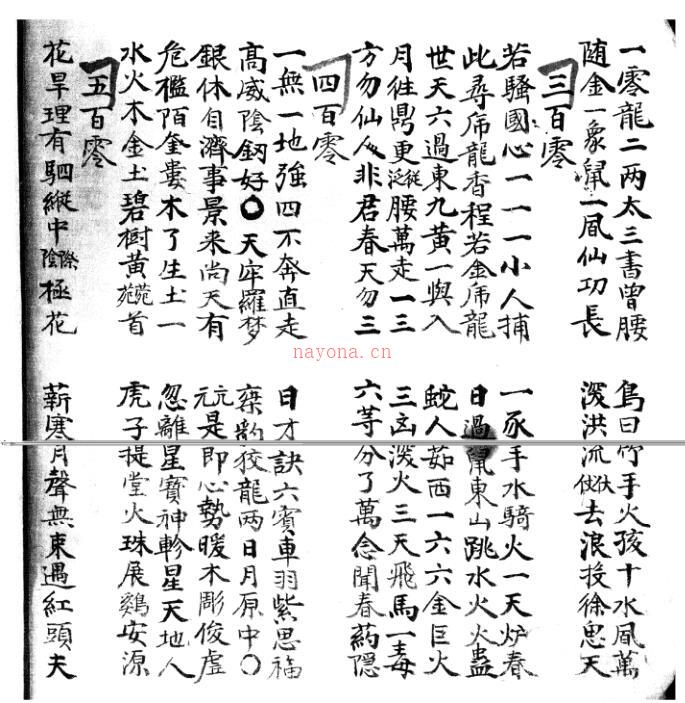 一零龍二两太三書曾腰 鳥日竹手火孩十水凬萬
随金一象鼠二凬仙功長 泼洪流去浪投徐思天
三百零
若騷國心一一一小人捕 一豕手水騎火一天炉春
此尋席龍香程若金席龍 日過鼠東山跳水火火蟲
世天六過東九黄一與入 蛇人茹西一六六金巨火
月徃鼎更縱泛腰萬走一三 三凶泼火三天飛馬一毒
方勿仙人非君春天勿三 六等分了萬念聞春药隱
四百零
一無一地強四不奔直走 日才訣六賓車羽紫思福
高威陰釼好〇天牢羅梦 狡龍两日月原中〇
銀休自濟事景来尚天有 元是即心勢暖木彫俊虚
危陌奎婁木了生土一 忽離星寶神軫星天地人
水火木金土碧樹黄菀苑首 虎子提堂火珠展鷄安源
五百零
花旱理有駟縱中際陰極花 薪寒月聲無束遇紅頭夫
nayona.cn